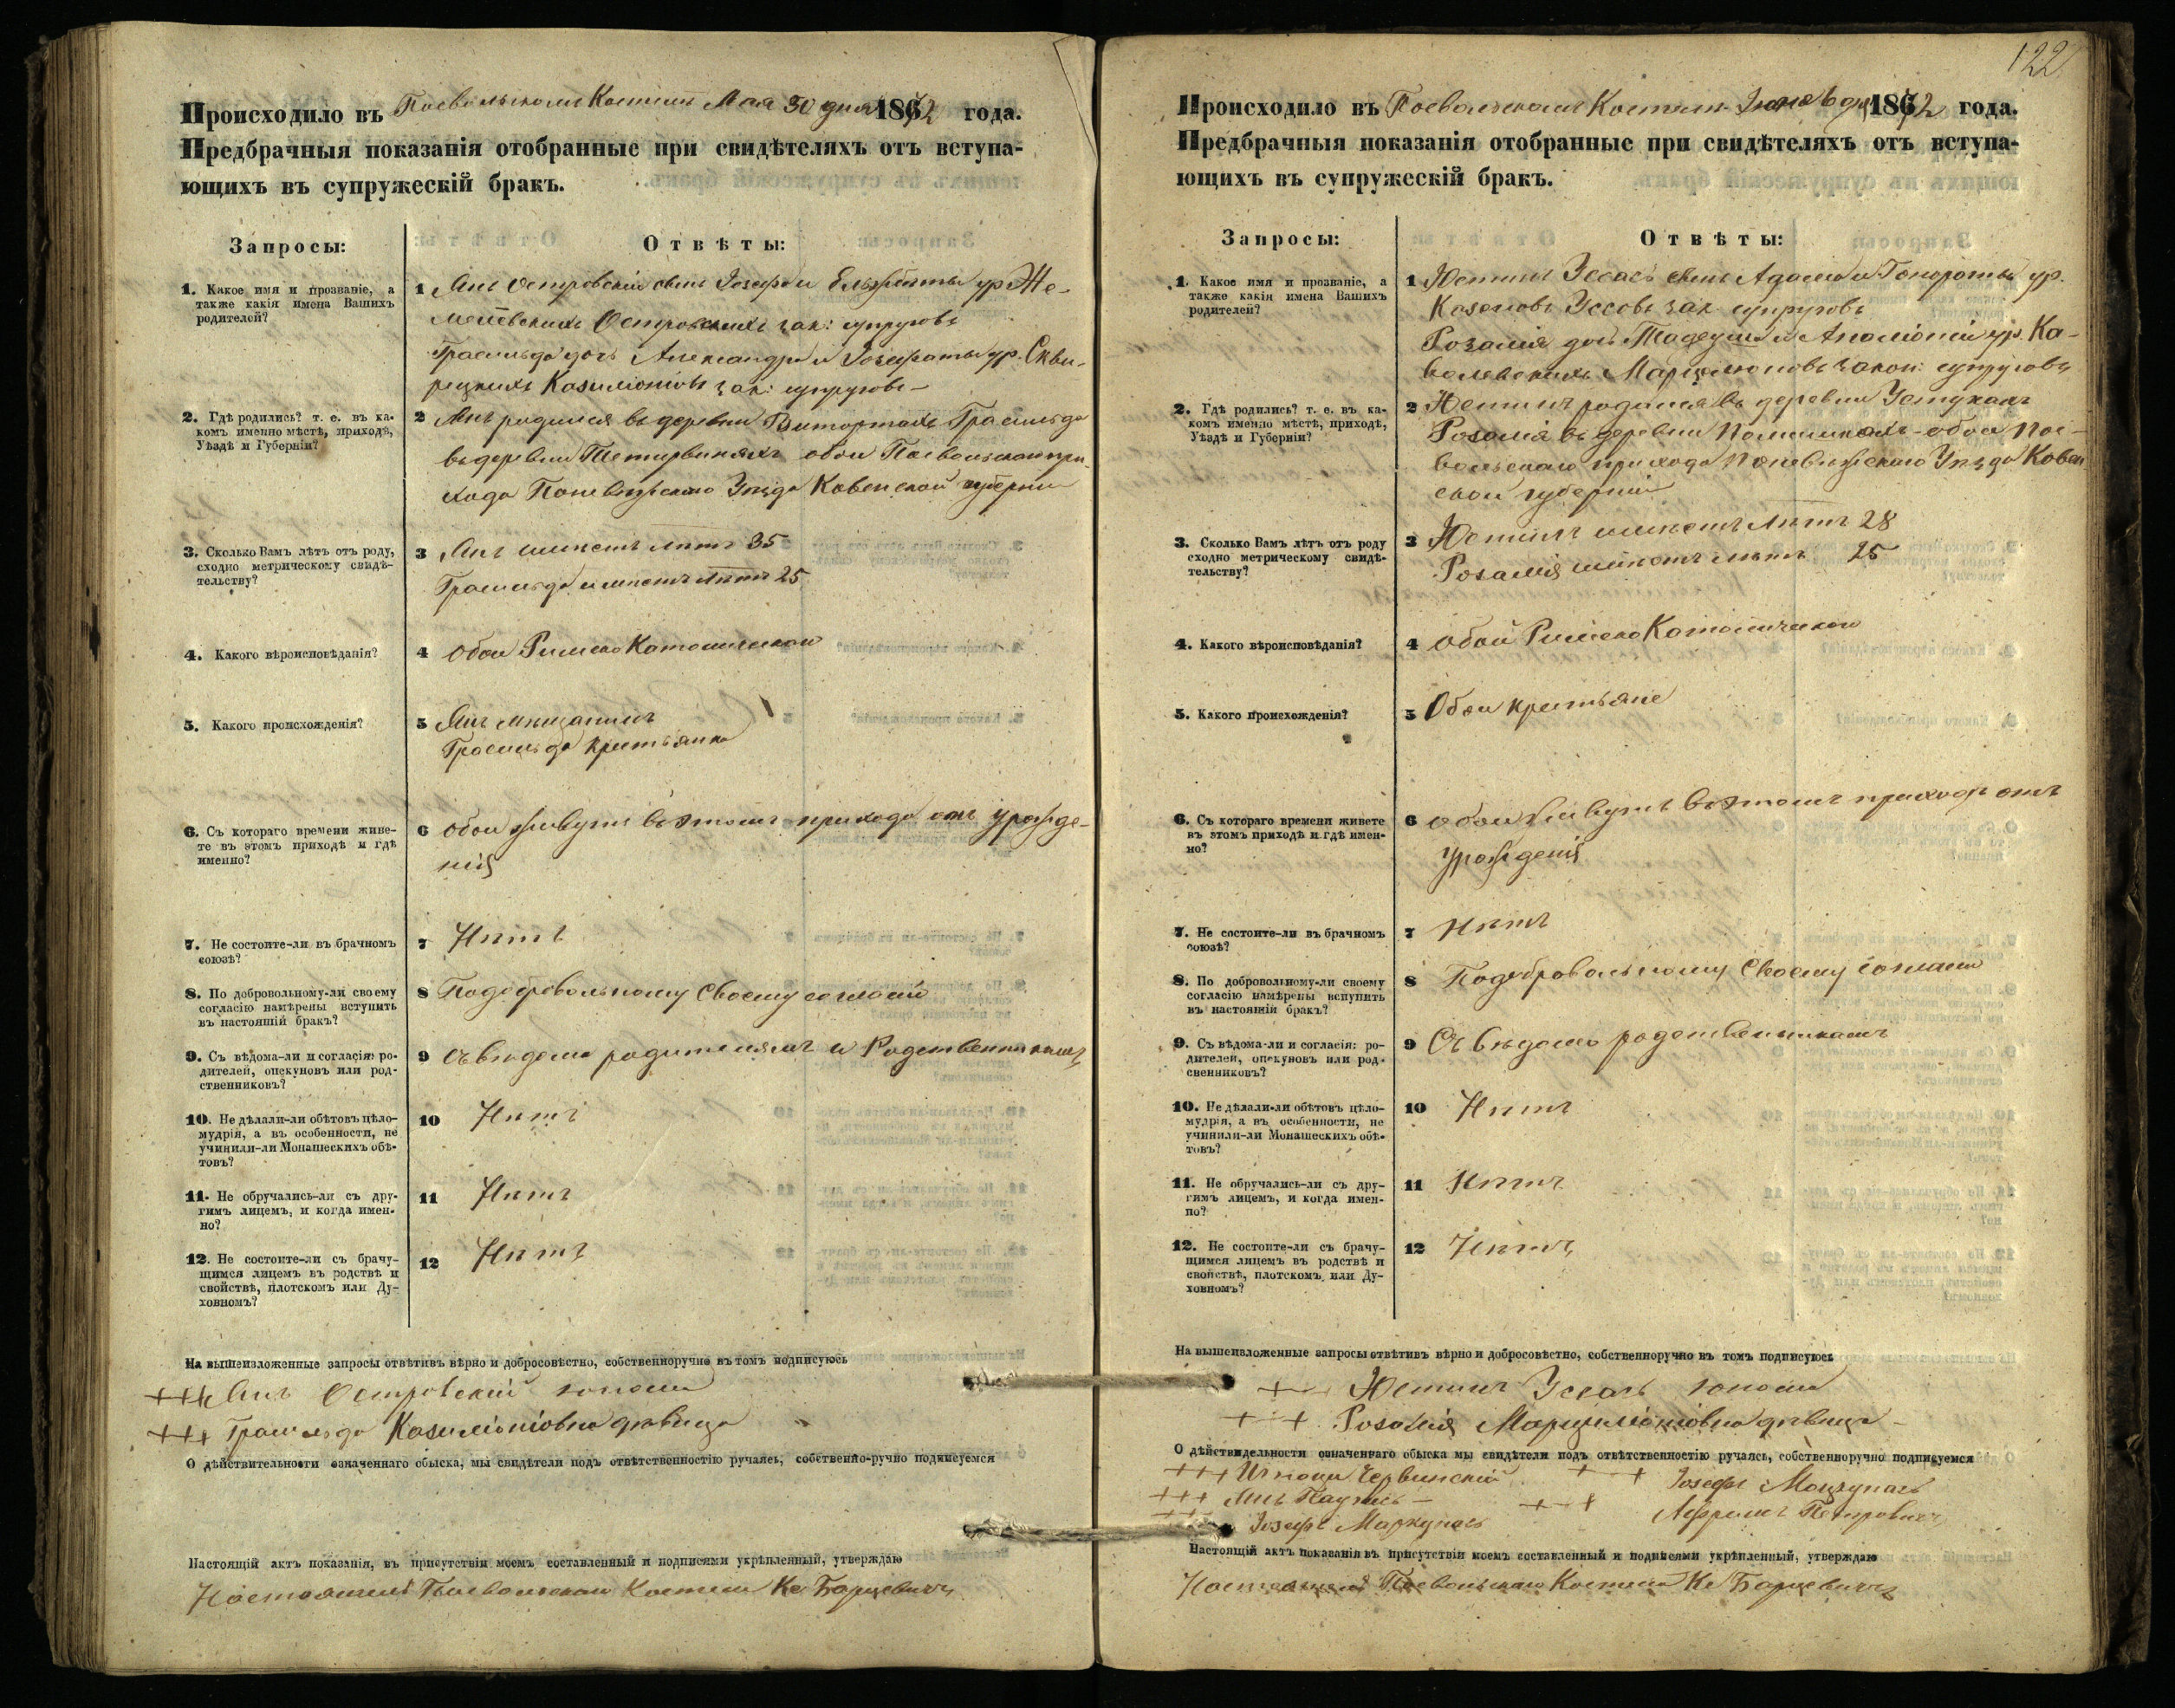 Происходило въ Поевольскомъ Костелѣ Мая 30 дня 1872 года.
Предбрачныя показанія отобранные при свидѣтеляхъ отъ вступа-
ющихъ въ супружескій бракъ.
Запросы:
Отвѣты:
1. Какое имя и прозваніе, а
также какія имена Вашихъ
родителей?
1 Янъ Островскій сынъ Іозефа и Ельжбеты ур. Же-
Островскихъ зак: супруговъ
Грасильда дочь Александра и Іозефаты ур. Скви-
рецкихъ Казиліоніовъ зак: супруговъ –
2. Гдѣ родились? т. е. въ ка-
комъ именно мѣстѣ, приходѣ,
Уѣздѣ и Губерніи?
2 Янъ родился въ деревни Грасильда
въ деревни Тетирвиняхъ обои Поевольскаго при-
хода Поневѣжскаго Уѣзда Ковенской губерніи
3. Сколько Вамъ лѣтъ отъ роду,
сходно метрическому свидѣ-
тельству?
3 Янъ имѣетъ лѣтъ 35
Грасильда имѣетъ лѣтъ 25
4. Какого вѣроисповѣданія?
4 Обои Римско Католической
5. Какого происхожденія?
5 Янъ мѣщанинъ
Грасильда крестьянка
6. Съ котораго времени живе-
те въ этомъ приходѣ и гдѣ
именно?
6 Обои живутъ въ этомъ приходѣ отъ урожде-
нія
7. Не состоите-ли въ брачномъ
союзѣ?
7 Нѣтъ
8. По добровольному-ли своему
согласію намѣрены вступить
въ настоящій бракъ?
8 Подобровольному своему согласію
9. Съ вѣдома-ли и согласія: ро-
дителей, опекуновъ или род-
ственниковъ?
9 Съ вѣдома родителямъ и Родственникамъ
10. Не дѣлали-ли обѣтовъ цѣло-
мудрія, а въ особенности, не
учинили-ли Монашескихъ обѣ-
товъ?
10 Нѣтъ
11. Не обручались-ли съ дру-
гимъ лицемъ, и когда имен-
но?
11 Нѣтъ
12. Не состоите-ли съ брачу-
щимся лицемъ въ родствѣ и
свойствѣ, плотскомъ или Ду-
ховномъ?
12 Нѣтъ
На вышеизложенные запросы отвѣтивъ вѣрно и добросовѣстно, собственноручно въ томъ подписуюсь
+++ Янъ Островскій юноша
+++ Грасильда Казиліоніовна дѣвица
О дѣйствительности означеннаго обыска, мы свидѣтели подъ отвѣтственностію ручаясь, собственно-ручно подписуемся
Настоящій актъ показанія, въ присутствіи моемъ составленный и подписями укрѣпленный, утверждаю
Настоятель Поевольскаго Костела Кс Барцевичъ
122
Происходило въ Поевольскомъ Костелѣ Іюня 6 дня 1872 года.
Предбрачныя показанія отобранные при свидѣтеляхъ отъ вступа-
ющихъ въ супружескій бракъ.
Запросы:
Отвѣты:
1. Какое имя и прозваніе, а
также какія имена Вашихъ
родителей?
1 Юстинъ Уссасъ сынъ Адама и ур.
Уссовъ зак супруговъ
Розалія дочь Тадеуша и Аполіоніи ур. Ка-
валевскихъ закон: супруговъ
2. Гдѣ родились? т. е. въ ка-
комъ именно мѣстѣ, приходѣ,
Уѣздѣ и Губерніи?
2 Юстинъ родился въ деревни Устукахъ
Розалія въ деревни обои Пое-
вольскаго прихода Поневѣжскаго Уѣзда Ковен
ской губерніи
3. Сколько Вамъ лѣтъ отъ роду
сходно метрическому свидѣ-
тельству?
3 Юстинъ имѣетъ лѣтъ 28
Розалія имѣетъ лѣтъ 25
4. Какого вѣроисповѣданія?
4 Обои Римско Католической
5. Какого происхожденія?
5 Обои крестьяне
6. Съ котораго времени живете
въ этомъ приходѣ и гдѣ имен-
но?
6 Обои живутъ въ этомъ приходѣ отъ
урожденія
7. Не состоите-ли въ брачномъ
союзѣ?
7 Нѣтъ
8. По добровольному-ли своему
согласію намѣрены вспупить
въ настоящій бракъ?
8 Подобровольному своему согласію
9. Съ вѣдома-ли и согласія: ро-
дителей, опекуновъ или род-
свенниковъ?
9 Съ вѣдома родственникамъ
10. Не дѣлали-ли обѣтовъ цѣло-
мудрія, а въ особенности, не
учинили-ли Монашескихъ обѣ-
товъ?
10 Нѣтъ
11. Не обручались-ли съ дру-
гимъ лицемъ, и когда имен-
но?
11 Нѣтъ
12. Не состоите-ли съ брачу-
щимся лицемъ въ родствѣ и
свойствѣ, плотскомъ или Ду-
ховномъ?
12 Нѣтъ
На вышеизложенные запросы отвѣтивъ вѣрно и добросовѣстно, собственноручно въ томъ подписуюсь
+++ Юстинъ Уссасъ юноша
+++ Розалія дѣвица –
О дѣйствидельности означеннаго обыска мы свидѣтели подъ отвѣтственностію ручаясь, собственноручно подписуемся
+++ Червинскій +++ Іозефъ
+++ Янъ +++ Петровичъ
Іозефъ
Настоящій актъ показанія въ присутствіи моемъ составленный и подписями укрѣпленный, утверждаю
Настоятель Поевольскаго Костела Кс Барцевичъ